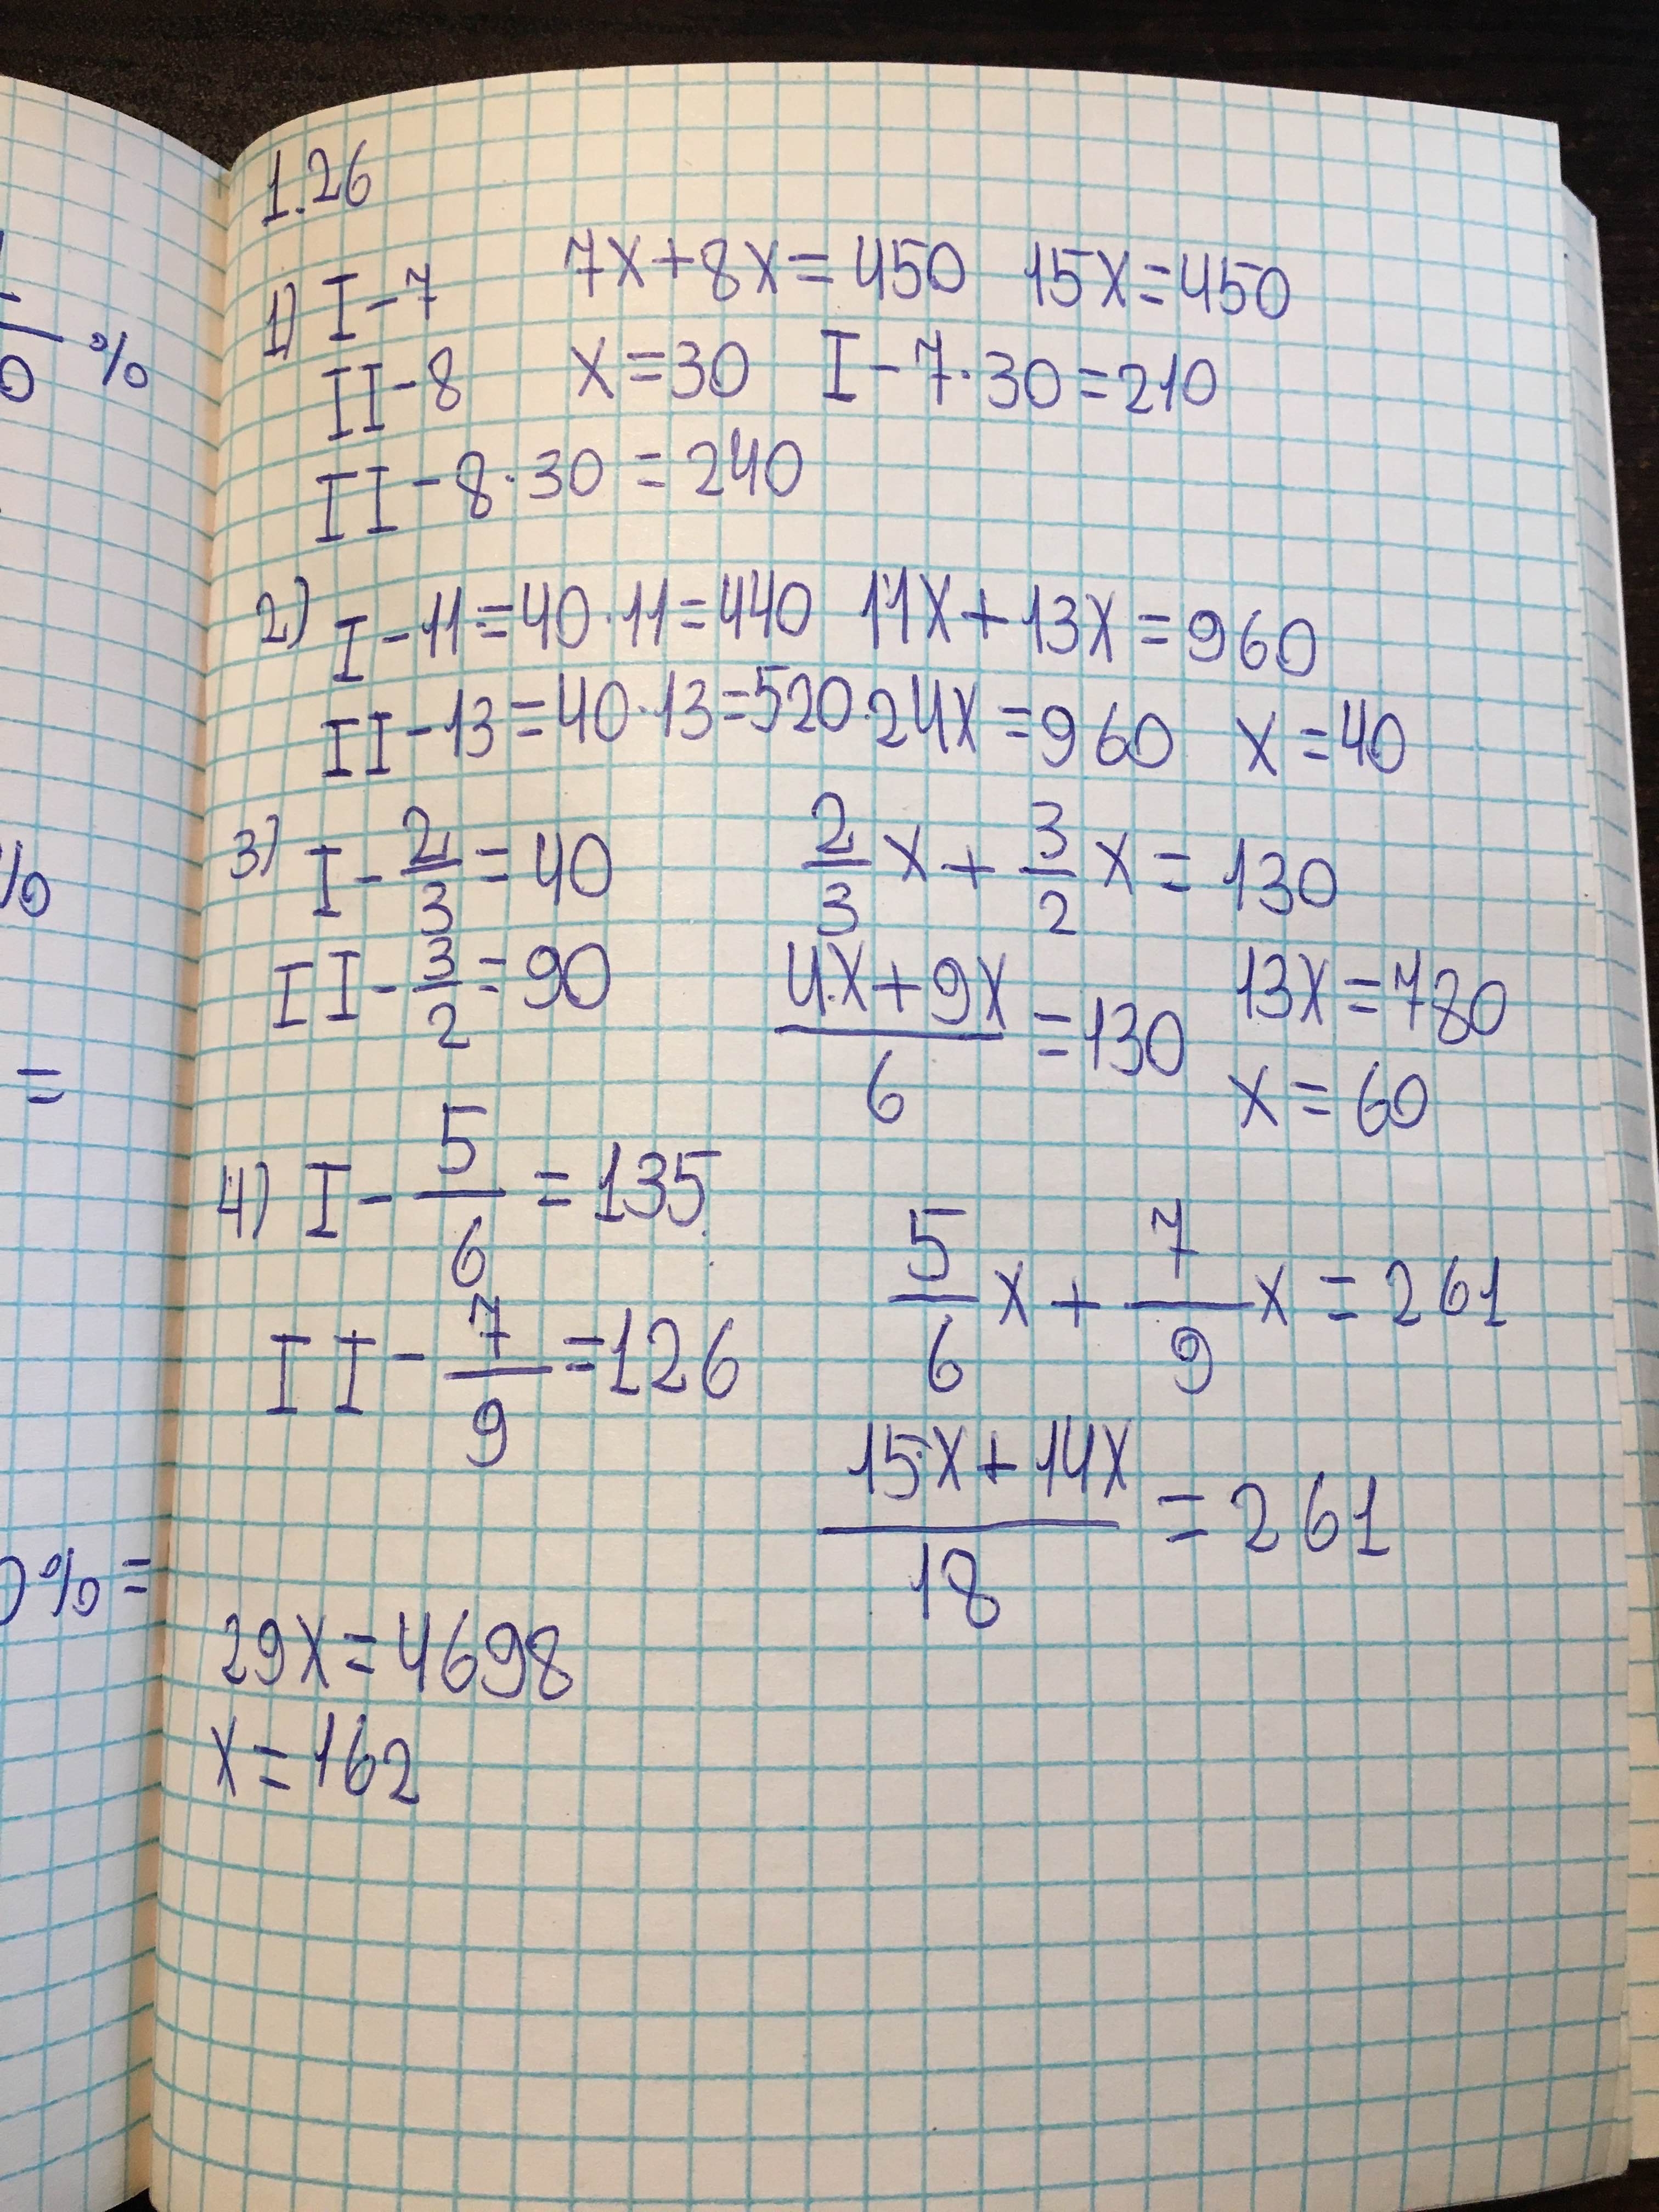 %
%
=
0%=
1.26
1) I-7 7x+8x=450 15x=450
II-8 x=30 I-7·30=210
II-8·30=240
2) I-11=40·11=440 11x+13x=960
II-13=40·13=520 24x=960 x=40
3) I-2/3=40 2/3x+3/2x=130
II-3/2=90 4x+9x/6=130 13x=780
x=60
4) I-5/6=135 5/6x+7/9x=261
II-7/9=126
15x+14x/18=261
29x=4698
x=162